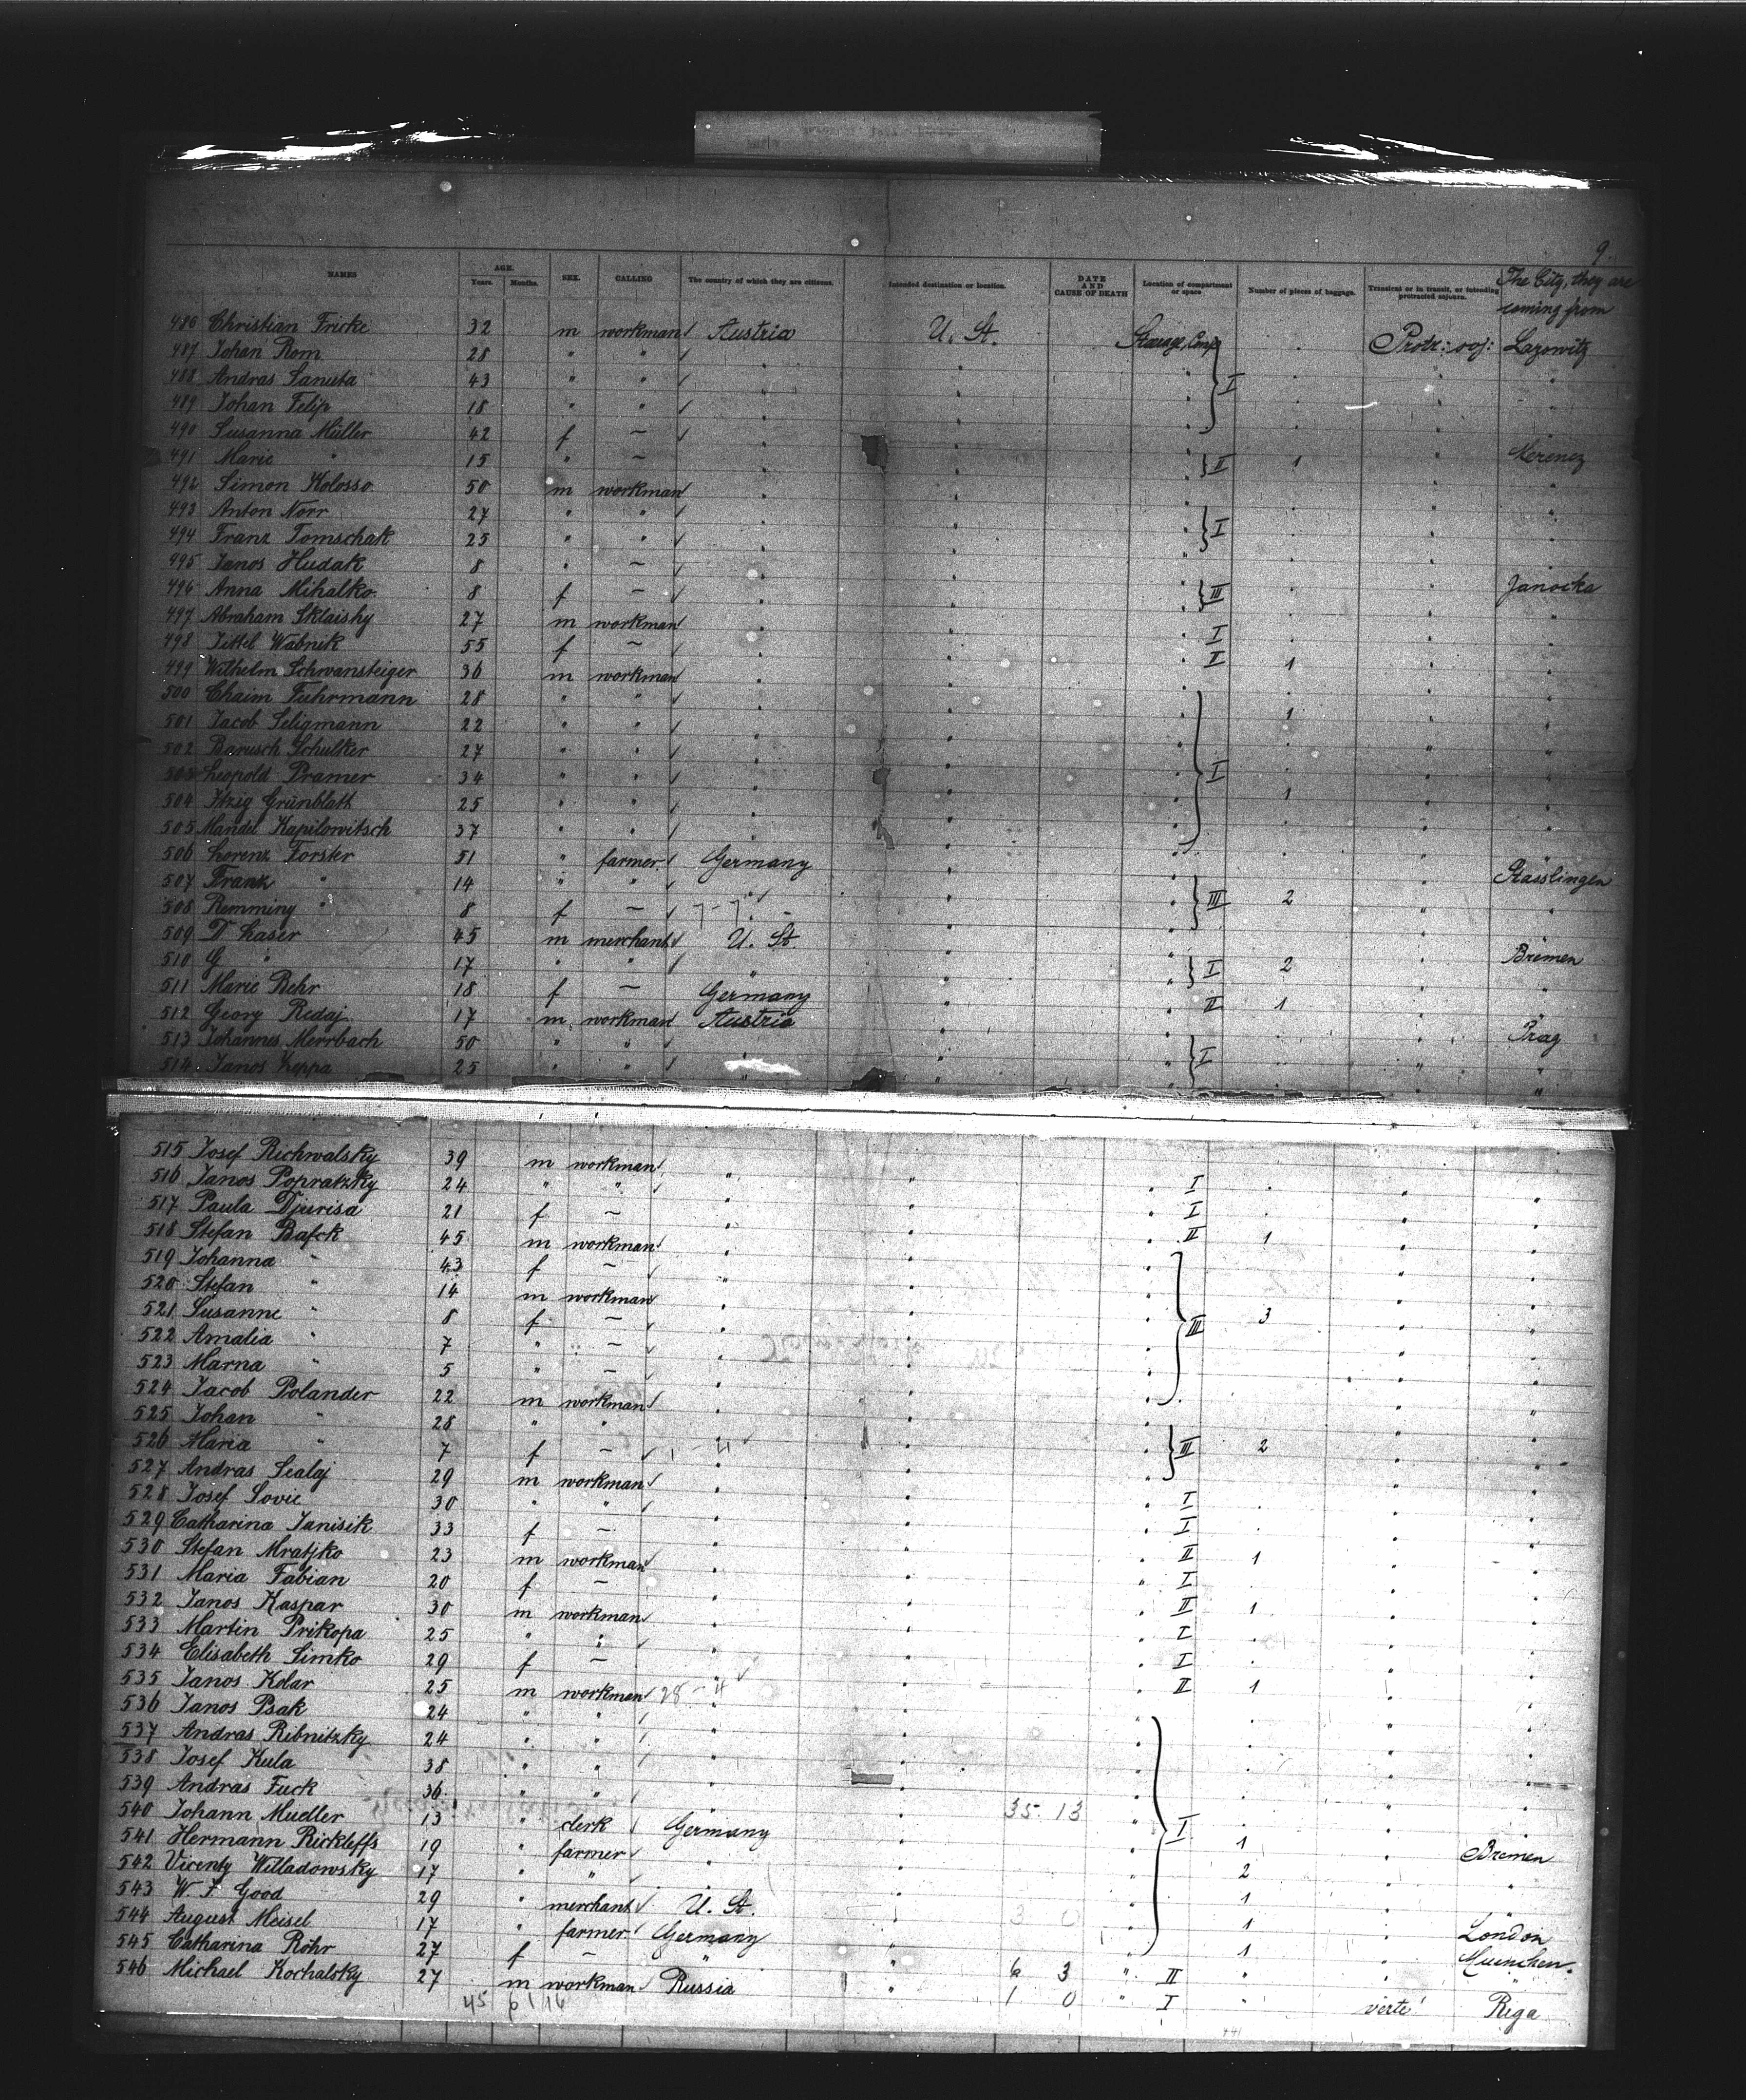 9.
NAMES AGE. Years. Months. SEX. CALLING The country of which they are citizens. Intended destination or location. DATE AND CAUSE OF DEATH Location of compartment or space Number of pieces of baggage. Transient or in transit, or intending protracted sojourn. The City, they are coming from
486 Christian Fricke 32 m workman Austria U. St. Steerage, Comp. Protr: soj: Lazowitz
487 Johan Rom 28 " " " " " " "
488 Andras Sanuta 43 " " " " " I " "
489 Johan Felip 18 " " " " " " "
490 Susanna Müller 42 f — " " " " Kerenez
491 Marie " 15 " — " " " II 1 " "
492 Simon Kolosso 50 m workman " " " " "
493 Anton Norr 27 " " " " " I " "
494 Franz Tomschak 25 " " " " " " "
495 Janos Hudak 8 " — " " " " Janocka
496 Anna Mihalko 8 f — " " " III " "
497 Abraham Sklaisky 27 m workman " " " I " "
498 Tittel Wabnik 55 f — " " " II 1 " "
499 Wilhelm Schwansteiger 36 m workman " " " " "
500 Chaim Fuhrmann 28 " " " " " 1 " "
501 Jacob Seligmann 22 " " " " " " "
502 Barusch Schulker 27 " " " " " I " "
503 Leopold Pramer 34 " " " " " 1 " "
504 Itzig Grünblatt 25 " " " " " " "
505 Mandel Kapilowitsch 37 " " " " " " "
506 Lorenz Forster 51 " farmer Germany " " " Rasslingen
507 Franz " 14 " " " " " III 2 " "
508 Remming " 8 f — 7-7 " " " "
509 D Laser 45 m merchant U. St " " " Bremen
510 G " 17 " " " " " I 2 " "
511 Marie Behr 18 f — Germany " " II 1 " "
512 Georg Redaj 17 m workman Austria " " " Prag
513 Johannes Merrbach 50 " " " " " I " "
514 Janos Keppa 25 " " " " " "
515 Josef Richwalsky 39 m workman " " " I " "
516 Janos Popratzky 24 " " " " " I " "
517 Paula Djurisa 21 f — " " " II 1 " "
518 Stefan Bafck 45 m workman " " " " "
519 Johanna " 43 f — " " " " "
520 Stefan " 14 m workman " " " 3 " "
521 Susanne " 8 f — " " " III " "
522 Amalia " 7 " " — " " " " "
523 Marna " 5 " — " " " " "
524 Jacob Polander 22 m workman " " " " "
525 Johan " 28 " " " " " III 2 " "
526 Maria " 7 f — " " " " "
527 Andras Sealaj 29 m workman " " " I " "
528 Josef Sovic 30 " " " " " I " "
529 Catharina Janisik 33 f — " " " II 1 " "
530 Stefan Mratjko 23 m workman " " " I " "
531 Maria Fabian 20 f — " " " II 1 " "
532 Janos Kaspar 30 m workman " " " I " "
533 Martin Prikopa 25 " " " " " I " "
534 Elisabeth Simko 29 f — " " " II 1 " "
535 Janos Kolar 25 m workman 28-4 " " " " "
536 Janos Psak 24 " " " " " " "
537 Andras Ribnitzky 24 " " " " " " "
538 Josef Kula 38 " " " " " " "
539 Andras Fuck 36 " " " " 35 13 " " "
540 Johann Mudler 13 " clerk Germany " " I 1 " Bremen
541 Hermann Rickleffs 19 " farmer " " " 2 " "
542 Vicenty Willadowsky 17 " " " " " 1 " "
543 W. F Good 29 " merchant U. St. " 3 0 " 1 " London
544 August Meisel 17 " farmer Germany " " 1 " Muenchen.
545 Catharina Röhr 27 f — " " 6 3 " II " " "
546 Michael Kochalsky 27 m workman Russia " 1 0 " I " verte! Riga
45 6 / 16